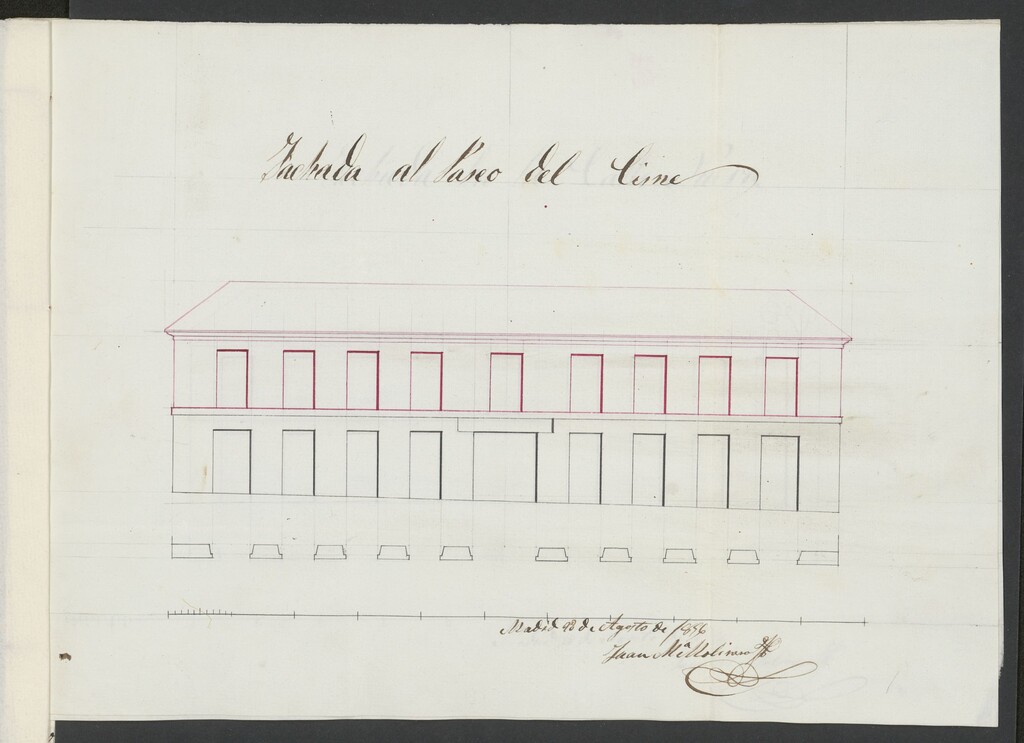 Fachada al Paseo del Cisne
Madrid de Agosto de 1856
Juan Mª